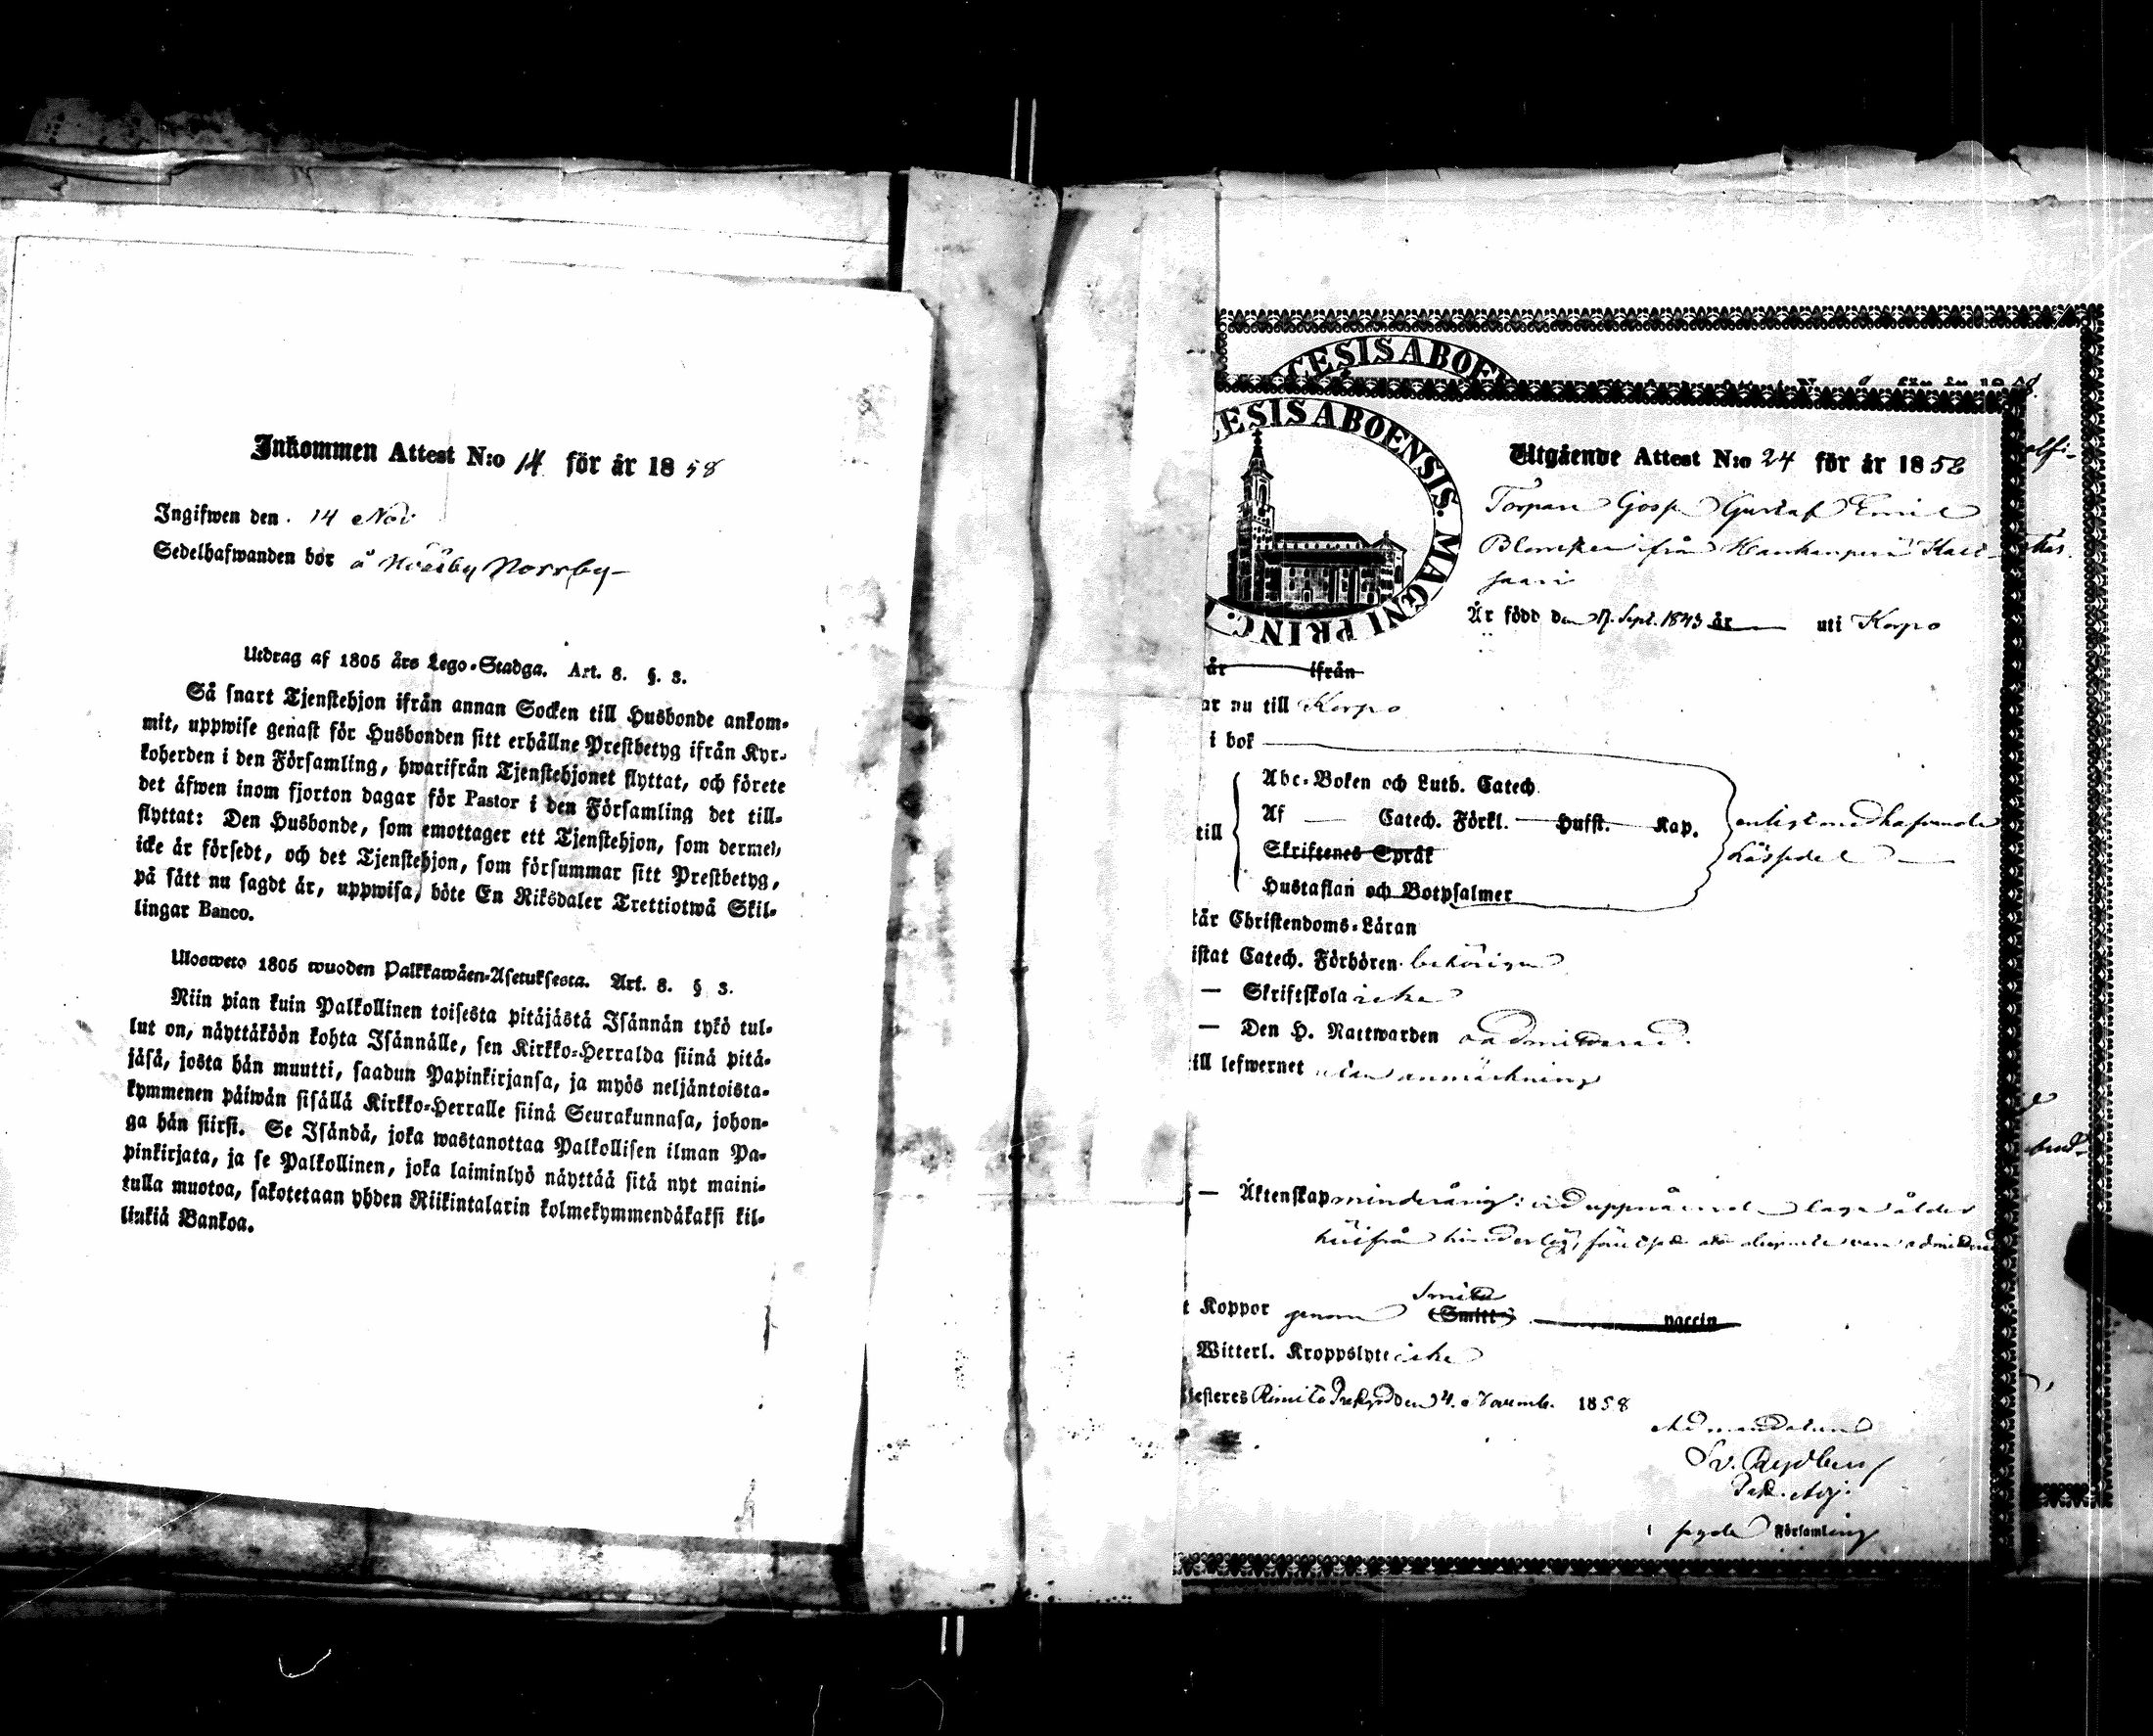 Inkommen Attest N:o 14 för år 1858
Ingifwen den 14 Nov
Sedelhafwanden bor å Norrby
Utdrag af 1805 års Lego-Stadga. Art. 8. §. 3.
Så snart Tjenstehjon ifrån annan Socken till Husbonde ankom-
mit, uppwise genast för Husbonden sitt erhållne Prestbetyg ifrån Kyr-
koherden i den Församling, hwarifrån Tjenstehjonet flyttat, och förete
det äfwen inom fjorton dagar för Pastor i den Församling det till-
flyttat: Den Husbonde, som emottager ett Tjenstehjon, som dermed
icke är försedt, och det Tjenstehjon, som försummar sitt Prestbetyg,
på sätt nu sagdt är, uppwisa, böte En Riksdaler Trettiotwå Skil-
lingar Banco.
Ulosweto 1805 wuoden Palkkawäen-Asetuksesta. Art. 8. § 3.
Niin pian kuin Palkollinen toisesta pitäjästä Isännän tykö tul-
lut on, näyttäköön kohta Isännälle, sen Kirkko-Herralda siinä pitä-
jäsä, josta hän muutti, saadun Papinkirjansa, ja myös neljäntoista-
kymmenen päiwän sisällä Kirkko-Herralle siinä Seurakunnasa, johon-
ga hän siirsi. Se Isändä, joka wastanottaa Palkollisen ilman Pa-
pinkirjata, ja se Palkollinen, joka laiminlyö näyttää sitä nyt maini-
tulla muotoa, sakotetaan yhden Riikintalarin kolmekymmendäkaksi kil-
linkiä Bankoa.
CESIS ABOEN
ESIS ABOENSIS. MAGNI PRINC.
Utgående Attest N:o 24 för år 1858
Torpare Goss Gustaf Emil
från
saari
Är född den 17. Sept. 1843 år uti Korpo
är ifrån
ar nu till Korpo
i bok
Abc-Boken och Luth. Catech.
till Af Catech. Förkl. Hufst. Kap. enligt medhafvande
Skriftenes Språk
Hustaflan och Botpsalmer
tår Christendoms-Läran
istat Catech. Förhören behörigen
— Skriftskola icke
— Den H. Nattwarden oadmitterad.
ill lefwernet utan anmärkning
— Äktenskap minderårig: vid uppnående laga ålder
härifrån
t Koppor genom Smitto (Smitt) vaccin
Witterl. Kroppslyte icke
testeres Rimito Prestgård den 4. Novemb. 1858
Ad mandatum
Sv. Rydberg
Past. Adj.
i sagde Församling